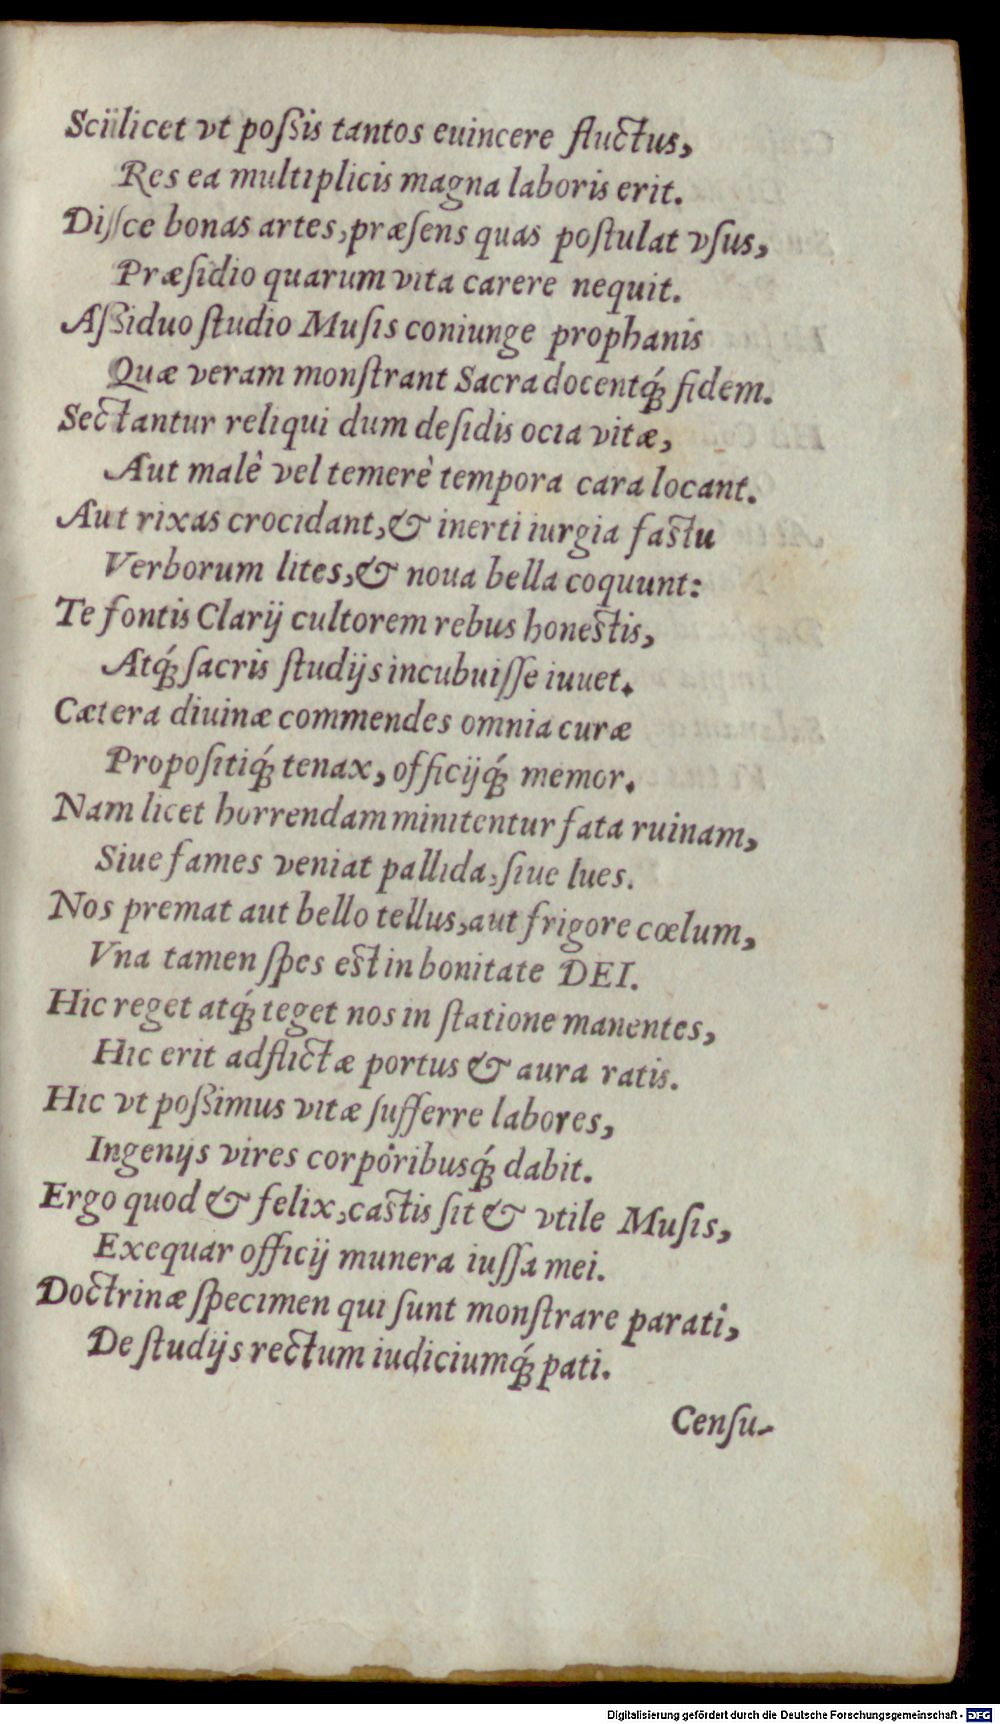 Sciilicet vt poſsis tantos euincere fluctus,
Res ea multiplicis magna laboris erit.
Diſſce bonas artes, præſens quas poſtulat vſus,
Præſidio quarum vita carere nequit.
Aſsiduo ſtudio Muſis coniunge prophanis
Quæ veram monſtrant Sacra docentq́; fidem.
Sectantur reliqui dum deſidis ocia vitæ,
Aut malê vel temerè tempora cara locant.
Aut rixas crocidant, & inerti iurgia faſtu
Verborum lites, & noua bella coquunt:
Te fontis Clarij cultorem rebus honeſtis,
Atq́; ſacris ſtudijs incubuiſſe iuuet.
Cætera diuinæ commendes omnia curæ
Propoſitiq́; tenax, officijq́; memor.
Nam licet horrendam minitentur fata ruinam,
Siue fames veniat pallida, ſiue lues.
Nos premat aut bello tellus, aut frigore cœlum,
Vna tamen ſpes eſt in bonitate DEI.
Hic reget atq́; teget nos in ſtatione manentes,
Hic erit adflictæ portus & aura ratis.
Hic vt poſsimus vitæ ſufferre labores,
Ingenijs vires corporibusq́; dabit.
Ergo quod & felix, caſtis ſit & vtile Muſis,
Exequar officij munera iuſſa mei.
Doctrinæ ſpecimen qui ſunt monſtrare parati,
De ſtudijs rectum iudiciumq́; pati.
Cenſu-
Digitalisierung gefördert durch die Deutsche Forschungsgemeinschaft - DFG